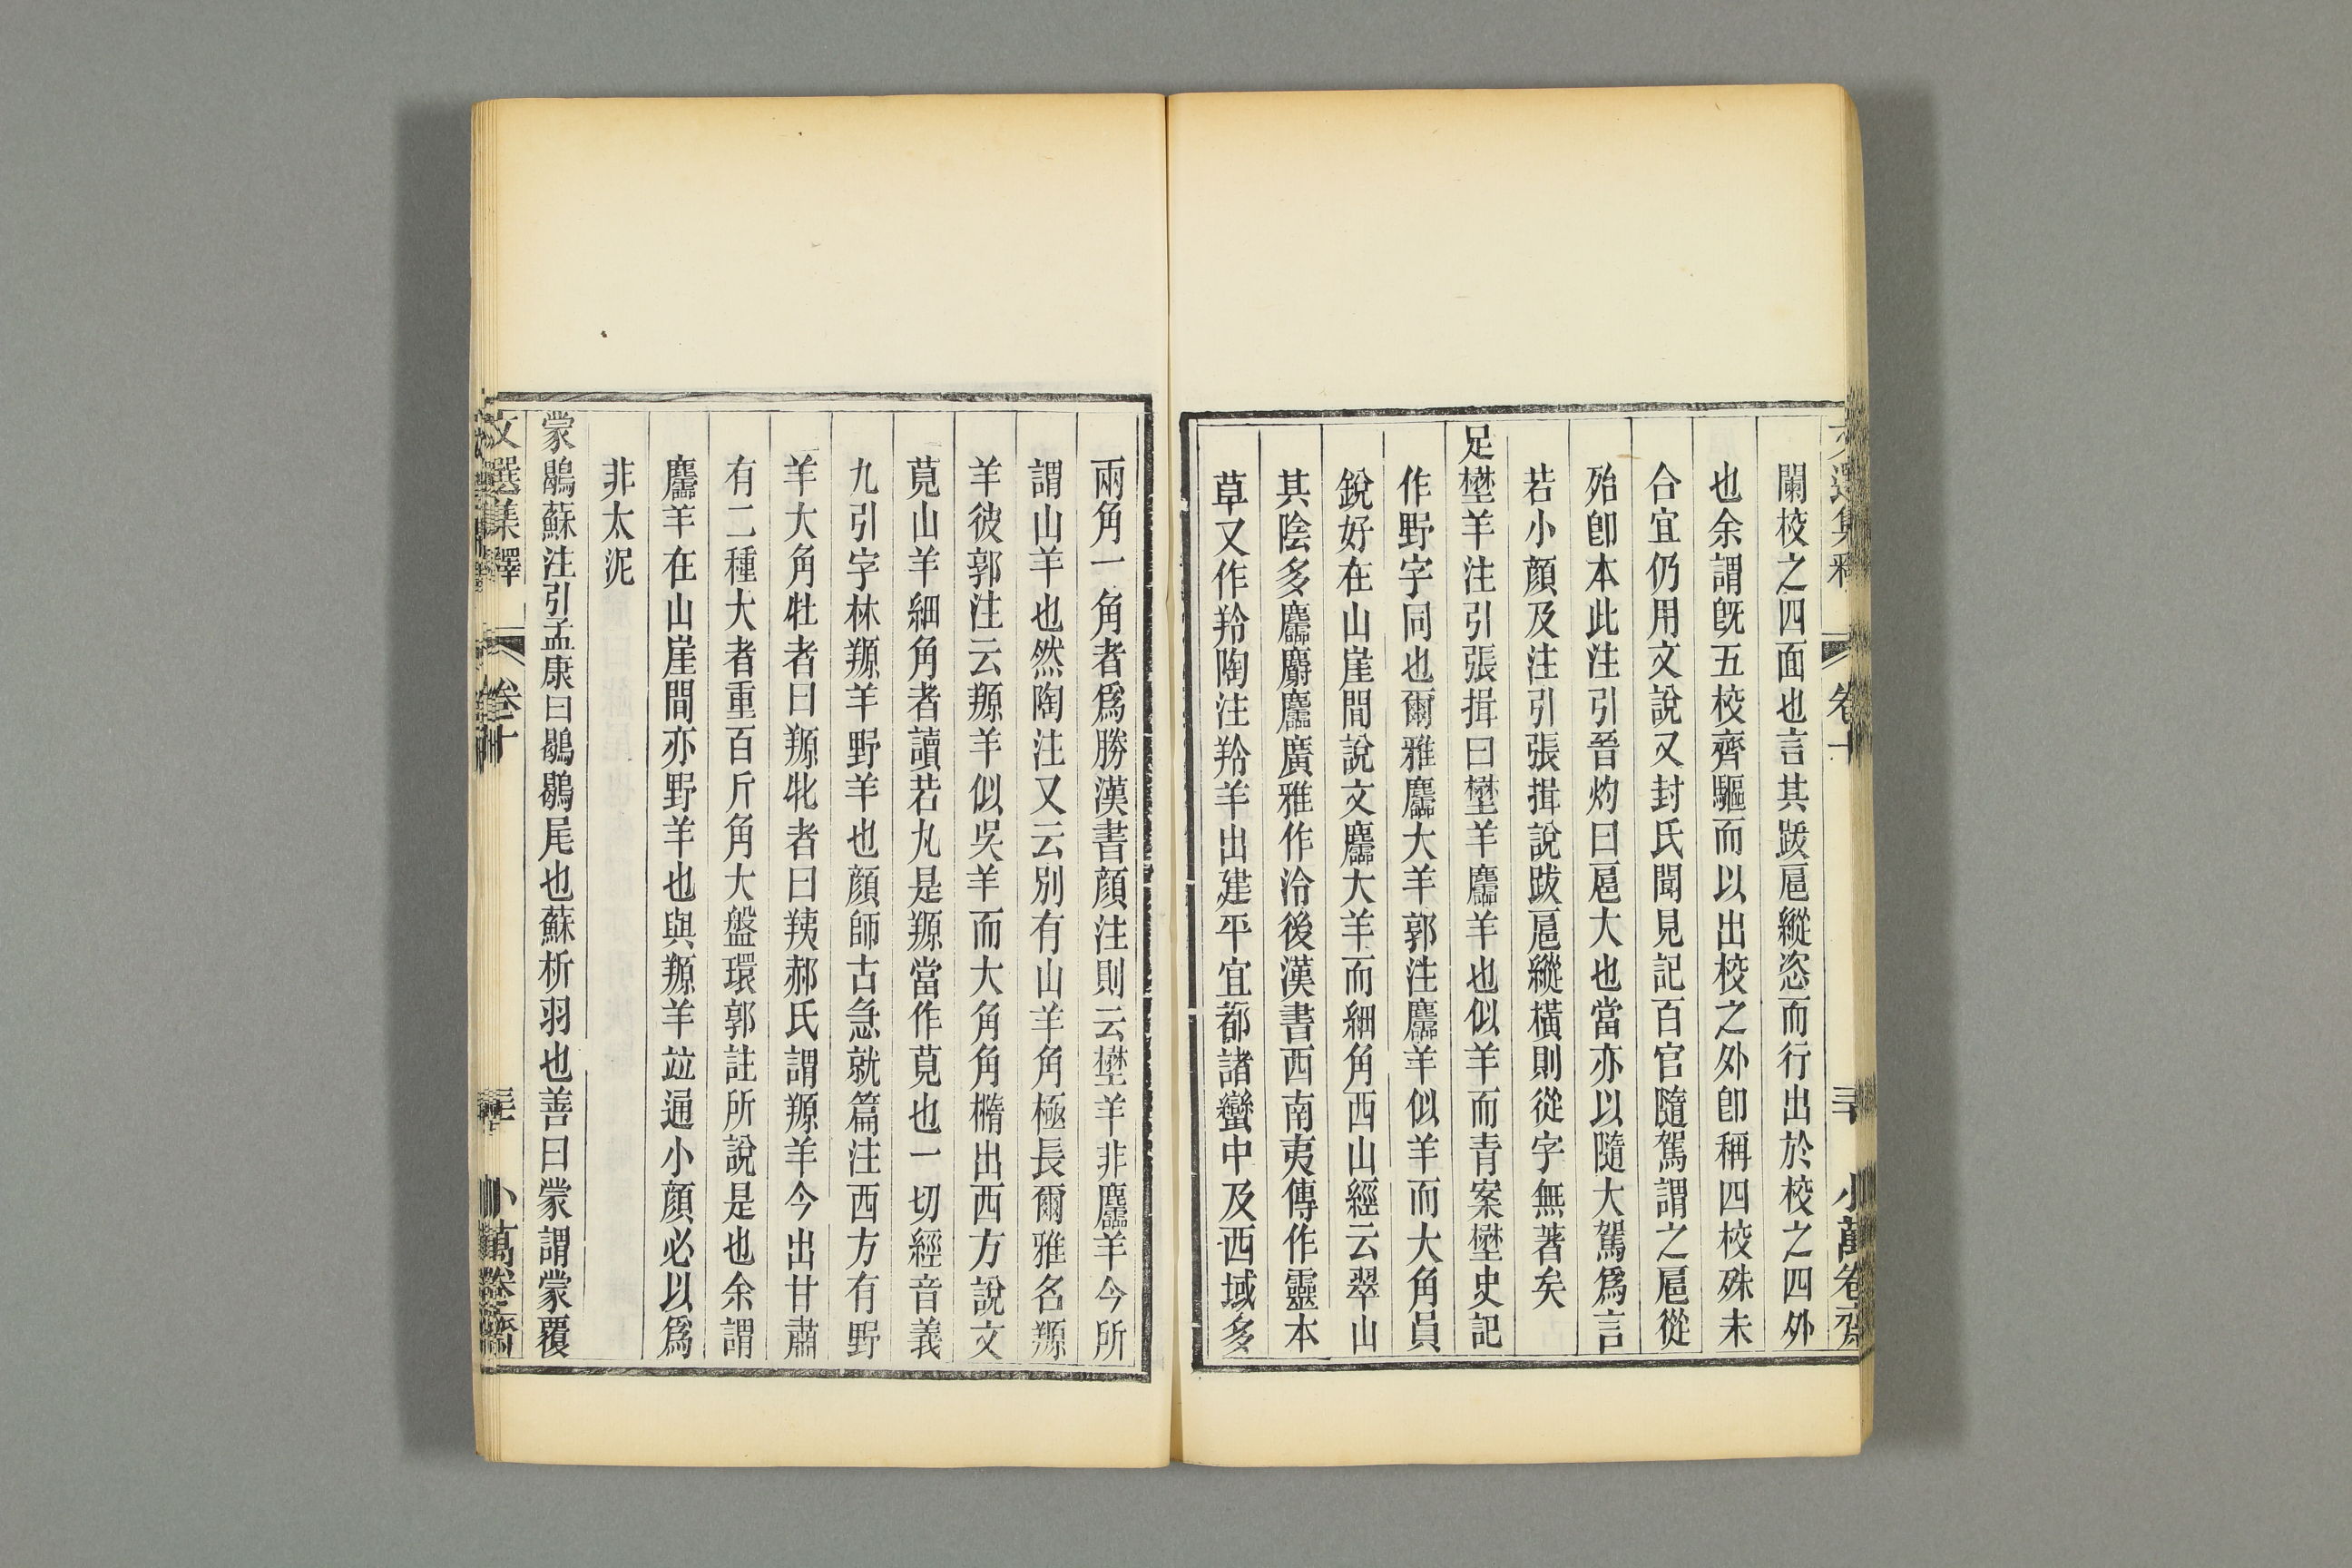 闌校之四面也言其跋扈縱恣而行出於校之四外
也余謂旣五校齊驅而以出校之外卽稱四校殊未
合宜仍用文說又封氏聞見記百官隨駕謂之扈從
殆卽本此注引晉灼曰扈大也當亦以隨大駕爲言
若小顏及注引張揖說跋扈縱橫則從字無著矣
足壄羊注引張揖曰壄羊麢羊也似羊而青案壄史記
作野字同也爾雅麢大羊郭注麢羊似羊而大角員
銳好在山崖間說文麢大羊而細角西山經云翠山
其陰多麢麝麢廣雅作泠後漢書西南夷傳作靈本
草又作羚陶注羚羊出建平宜都諸蠻中及西域多
兩角一角者爲勝漢書顏注則云壄羊非麢羊今所
謂山羊也然陶注又云別有山羊角極長爾雅名羱
羊彼郭注云羱羊似吳羊而大角角橢出西方說文
莧山羊細角者讀若丸是羱當作莧也一切經音義
九引字林羱羊野羊也顏師古急就篇注西方有野
羊大角牡者曰羱牝者曰羠郝氏謂羱羊今出甘肅
有二種大者重百斤角大盤環郭註所說是也余謂
麢羊在山崖間亦野羊也與羱羊竝通小顏必以爲
非太泥
蒙鶡蘇注引孟康曰鶡鶡尾也蘇析羽也善曰蒙謂蒙覆
文選集釋 卷十 小萬卷齋